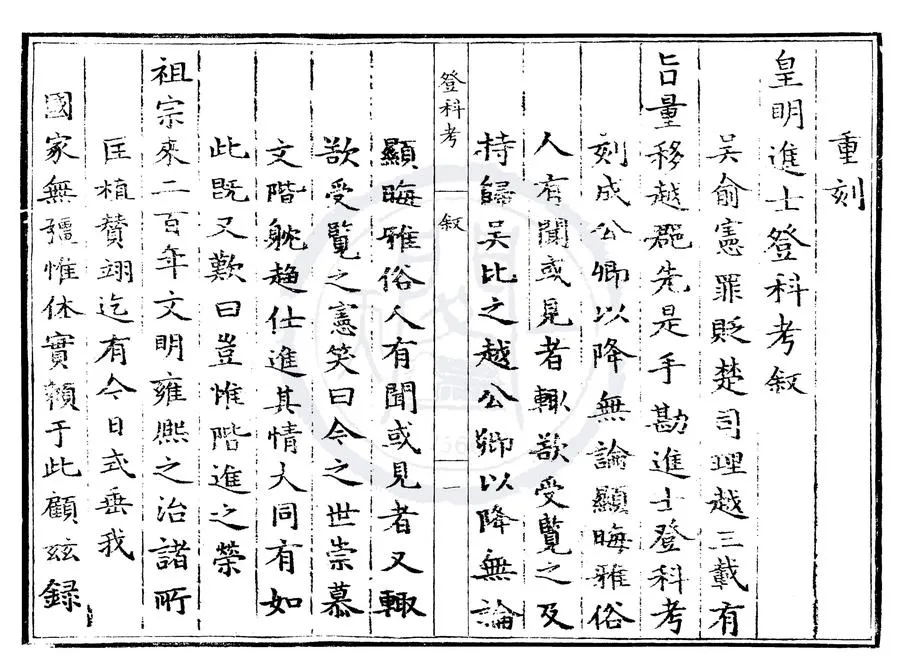 重刻
皇明進士登科考叙
吴俞憲罪貶楚司理越三載有
旨量移越郡先是手勘進士登科考
刻成公卿以降無論顯晦雅俗
人有聞或見者輙欲受覧之及
持歸吴比之越公卿以降無論
登科考 叙 一
顯晦雅俗人有聞或見者又輙
欲受覧之憲笑曰今之世崇慕
文階躭趋仕進其情大同有如
此既又歎曰豈惟階進之榮
祖宗來二百年文明雍熙之治諸所
匡植賛翊迄有今日式垂我
國家無彊惟休實頼于此顧兹録